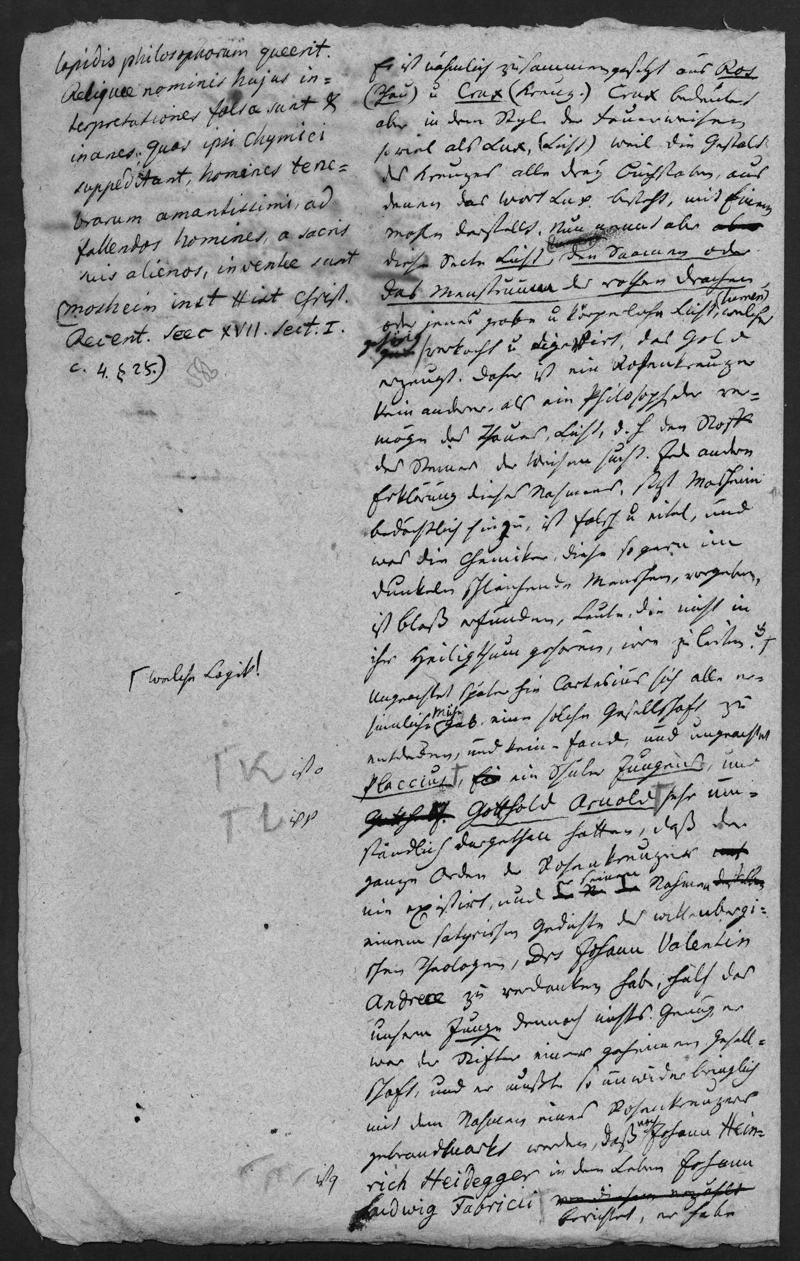 lapidis philosophorum queerit.
Reliquee nominis hujus in=
terpretationes falsa sunt &
inanes, quas ipsi Chymici
suppeditant, homines tene=
brarum amantissimi, ad
fallendos homines, a sacris
suis alienos, inventae sunt
(Mosheim inst Hist Christ.
Recent. Seec XVII. Sect. I.
c. 4. § 28.)
Es ist nähmlich zusammengesetzt aus Ros
(Thau) u Crux (Kreuz.) Crux bedeutet
aber in dem Styl der Feuerweisen
soviel als Lux, (Licht) weil die Gestalt
des Kreuzes alle drey Buchstaben, aus
denen das Wort Lux besteht, mit Einem
mahle darstellt. Nun nennt aber
diese Secte Licht, den Saamen oder
das Menstruum des rothen Drachen,
oder jenes grobe u körperliche Licht, (lumen) welches
gehörig verkocht u digerirt, das Gold
erzeugt. Daher ist ein Rosenkreuzer
kein anderer, als ein Philosoph, der ver=
möge des Thaues, Licht, d. h den Stoff
des Steines der Weisen sucht. Jede andere
Erklärung dieses Nahmens, sezt Mosheim
bedächtlich hinzu, ist falsch u eitel, und
was die Chemiker, diese so gern im
Dunkeln schleichende Menschen, vorgeben,
ist bloß erfunden, Leute, die nicht in
ihr Heiligthum gehören, irre zu leiten.
Γ welche Logik!
Ungeachtet späterhin Cartesius sich alle er=
sinnliche Mühe gab, eine solche Gesellschaft zu
entdecken, und keine fand, und ungeachtet
Placcius, ein Schüler Jungens, und
Γ K
Γ L
Gotthold Arnold sehr um=
ständlich dargethan hatten, daß der
ganze Orden der Rosenkreuzer
nie existirt, und seinen Nahmen
einem satyrischen Gedichte des wittenbergi=
schen Theologen, Drs Johann Valentin
Andreae zu verdanken habe, half das
unserm Junge dennoch nichts. Genug er
war der Stifter einer geheimen Gesell=
schaft, und er mußte so unwiderbringlich
mit dem Nahmen eines Rosenkreuzers
gebrandmarkt werden, daß noch Johann Hein=
rich Heidegger in dem Leben Johann
Ludwig Fabricii
berichtet, er habe